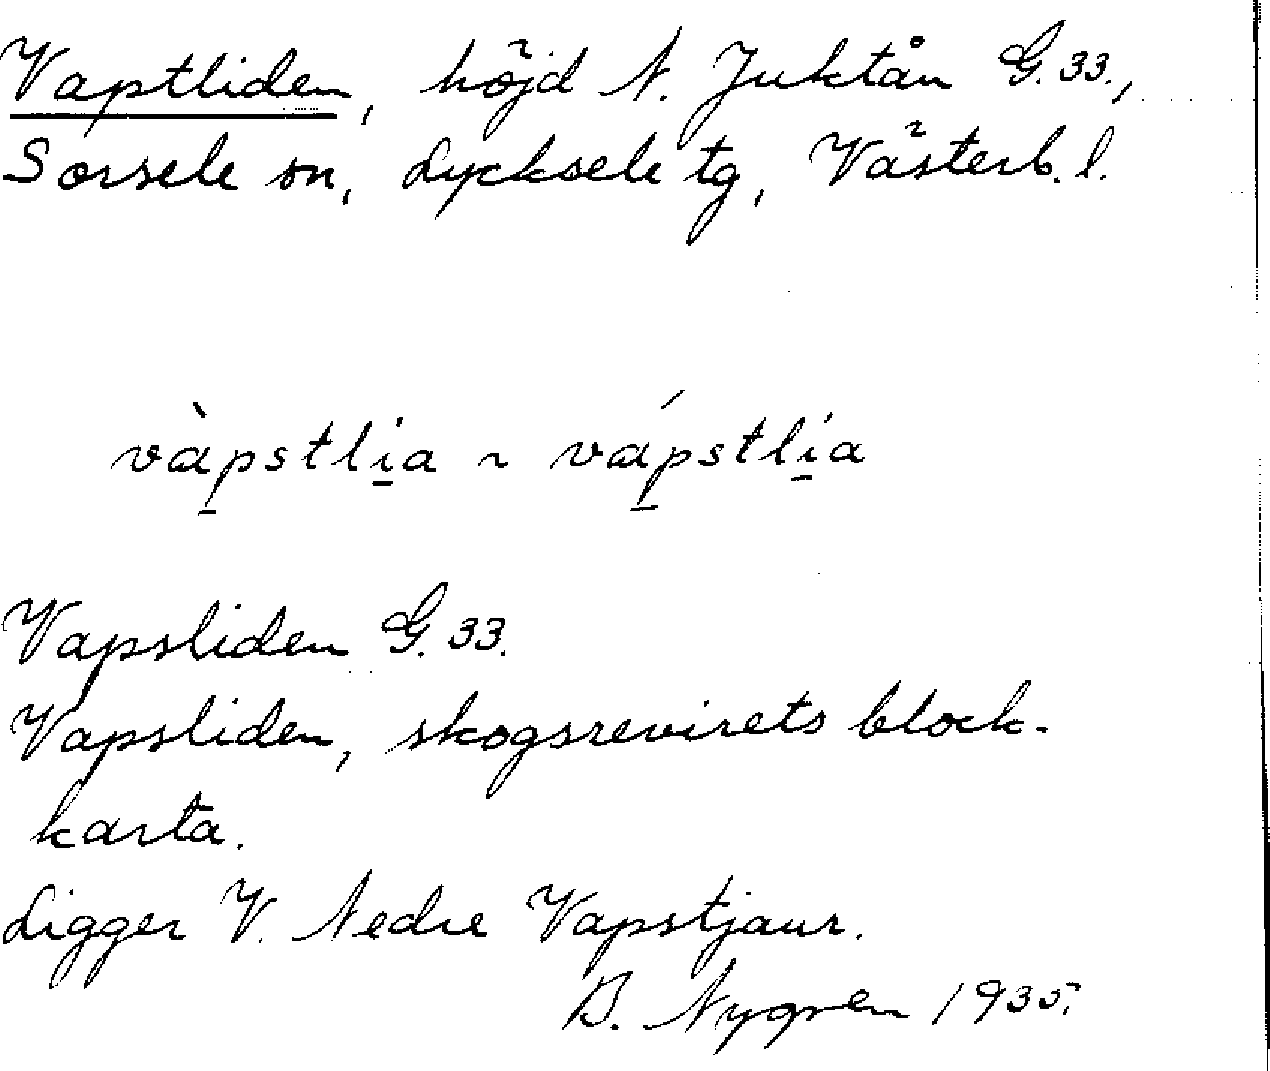 Vaptliden, höjd N. Juktån G. 33.,
Sorsele sn, Lycksele tg, Västerb. l.
vàpstli̱a ~ vápstli̱a
Vapsliden G. 33.
Vapsliden, skogsrevirets block-
karta.
Ligger V. Nedre Vapstjaur.
B. Nygren 1935.